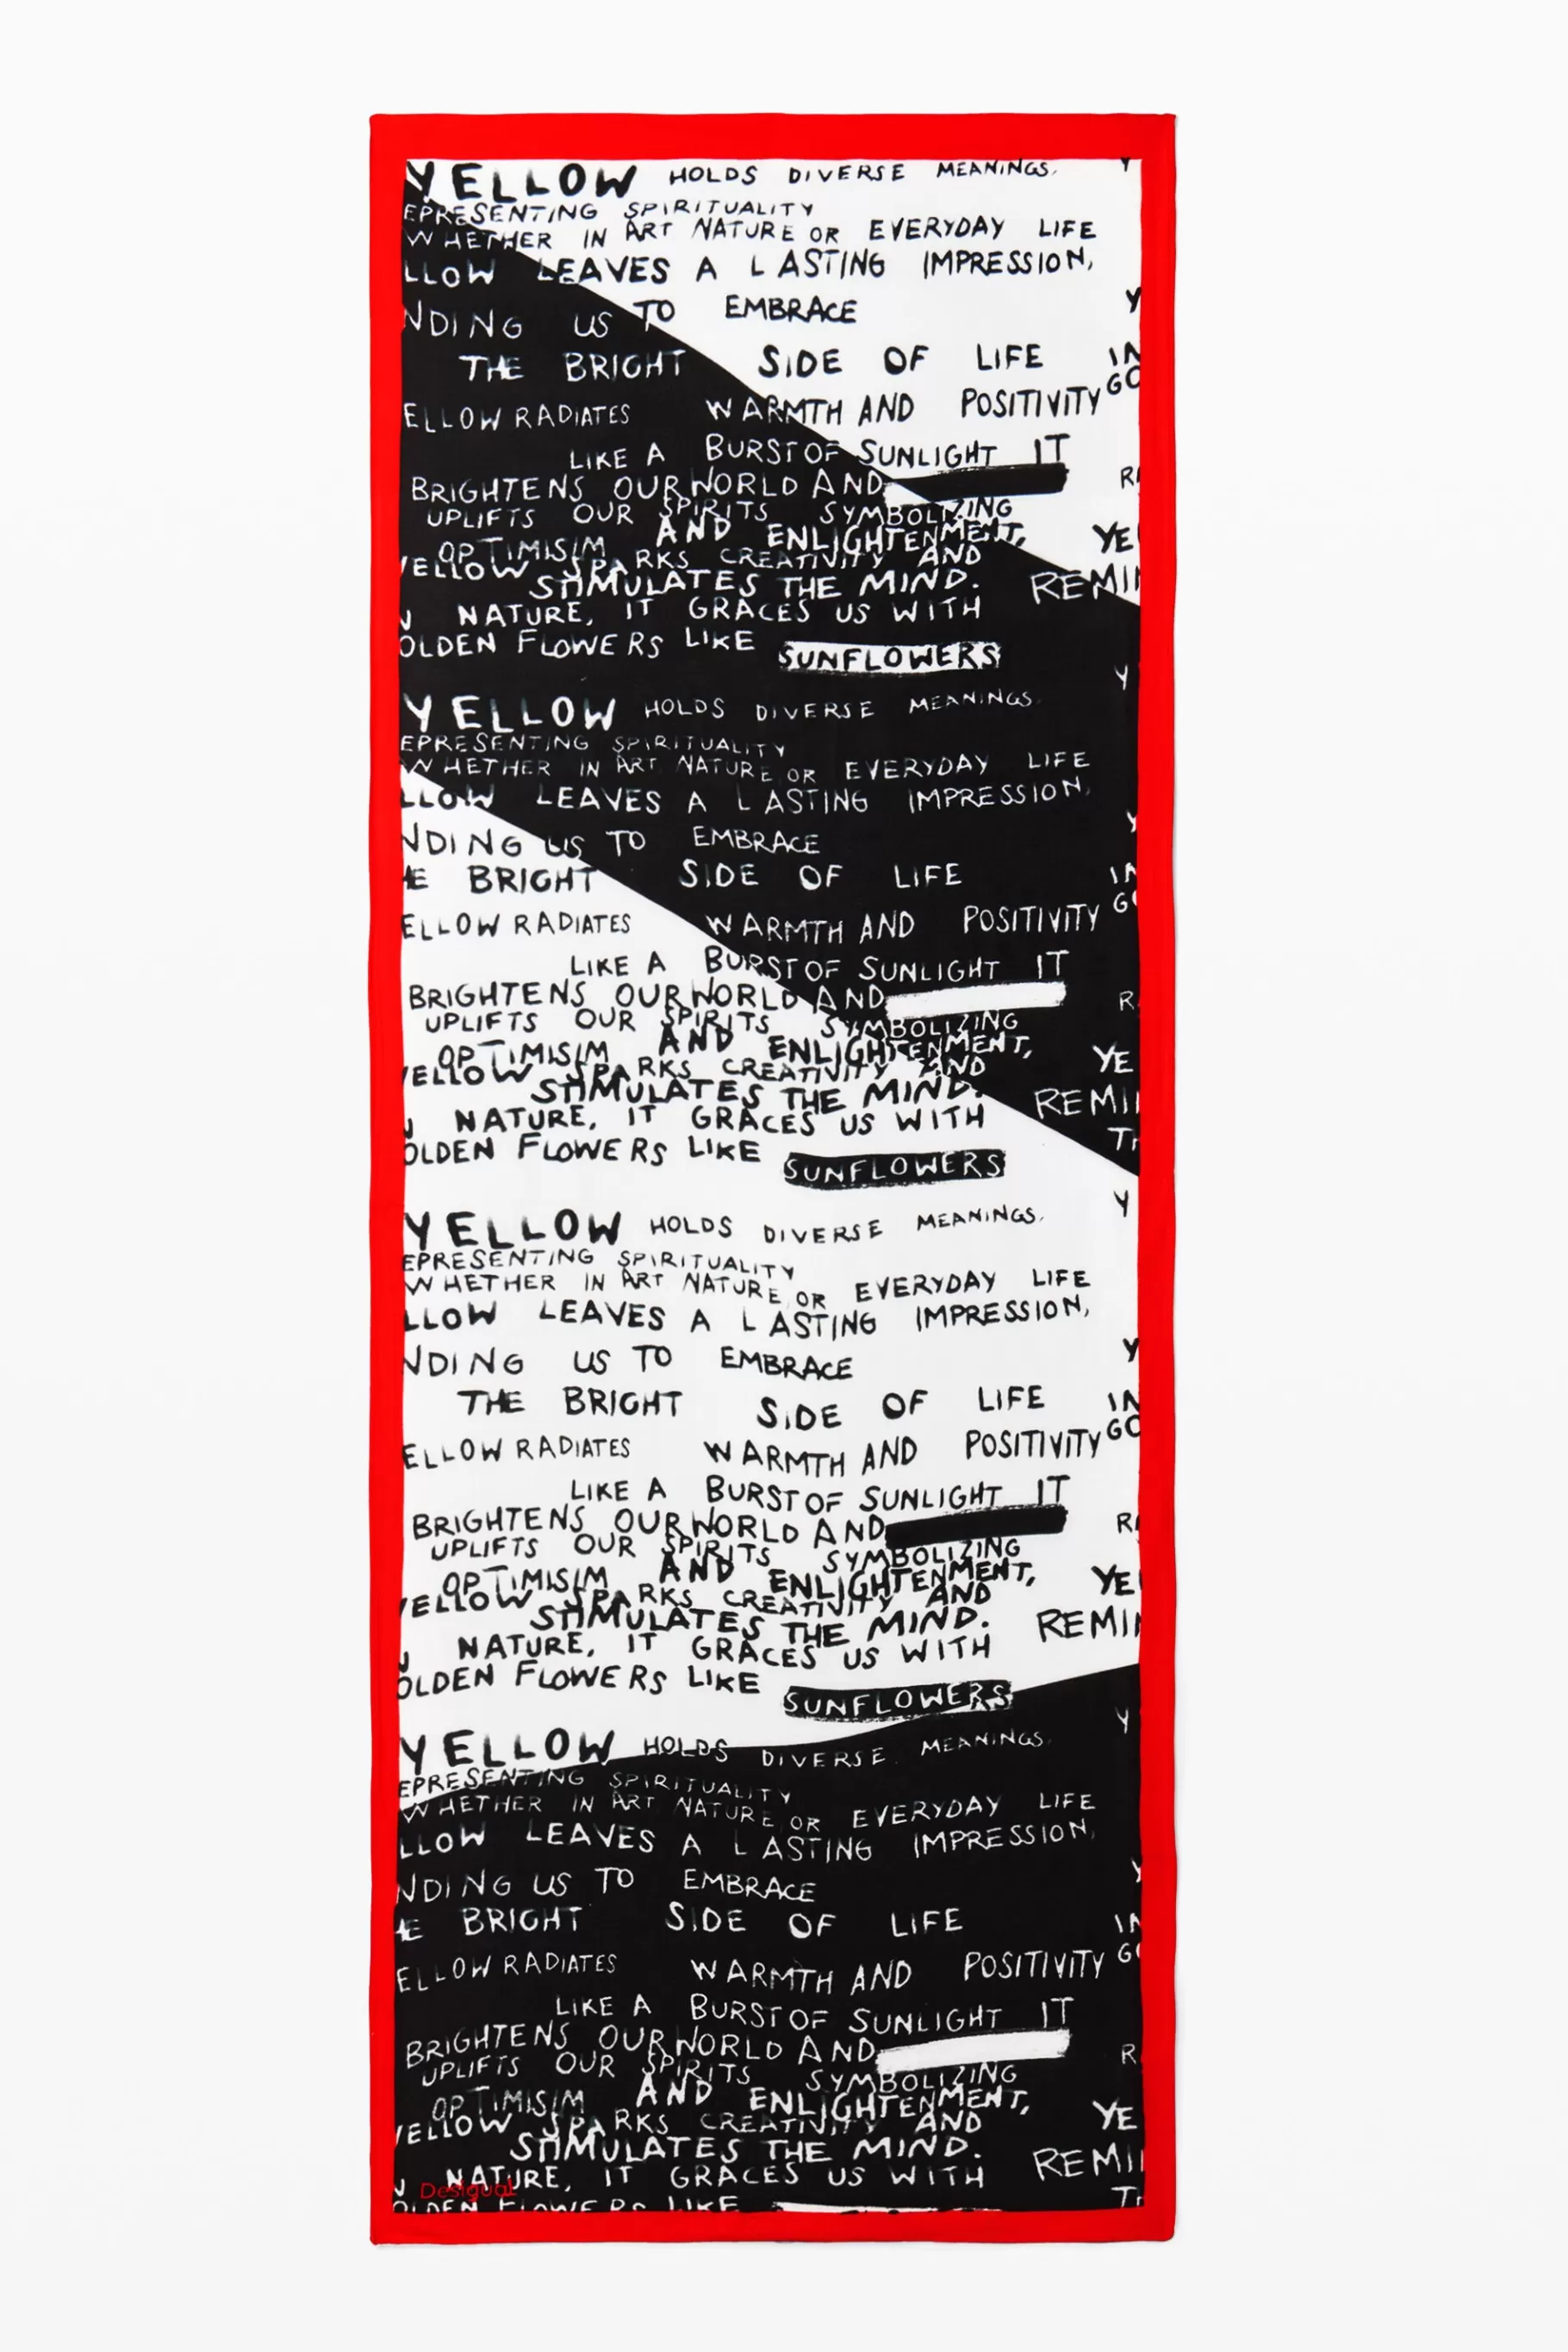 YELLOW HOLDS DIVERSE MEANINGS. Y
EPRESENTING SPIRITUALITY
WHETHER IN ART NATURE OR EVERYDAY LIFE
LLOW LEAVES A LASTING IMPRESSION,
NDING US TO EMBRACE Y
THE BRIGHT SIDE OF LIFE IN
GO
ELLOW RADIATES WARMTH AND POSITIVITY
LIKE A BURST OF SUNLIGHT IT
BRIGHTENS OUR WORLD AND R
UPLIFTS OUR SPIRITS SYMBOLIZING
OPTIMISIM AND ENLIGHTENMENT, YE
YELLOW SPARKS CREATIVITY AND
STIMULATES THE MIND. REMI
N NATURE, IT GRACES US WITH
OLDEN FLOWERS LIKE SUNFLOWERS
YELLOW HOLDS DIVERSE MEANINGS. Y
EPRESENTING SPIRITUALITY
WHETHER IN ART NATURE OR EVERYDAY LIFE
LLOW LEAVES A LASTING IMPRESSION,
NDING US TO EMBRACE Y
E BRIGHT SIDE OF LIFE IN
GO
ELLOW RADIATES WARMTH AND POSITIVITY
LIKE A BURST OF SUNLIGHT IT
BRIGHTENS OUR WORLD AND R
UPLIFTS OUR SPIRITS SYMBOLIZING
OPTIMISIM AND ENLIGHTENMENT, YE
YELLOW SPARKS CREATIVITY AND
STIMULATES THE MIND. REMI
N NATURE, IT GRACES US WITH T
OLDEN FLOWERS LIKE SUNFLOWERS
YELLOW HOLDS DIVERSE MEANINGS. Y
EPRESENTING SPIRITUALITY
WHETHER IN ART NATURE OR EVERYDAY LIFE
LLOW LEAVES A LASTING IMPRESSION,
NDING US TO EMBRACE Y
THE BRIGHT SIDE OF LIFE IN
GO
ELLOW RADIATES WARMTH AND POSITIVITY
LIKE A BURST OF SUNLIGHT IT
BRIGHTENS OUR WORLD AND R
UPLIFTS OUR SPIRITS SYMBOLIZING
OPTIMISIM AND ENLIGHTENMENT, YE
YELLOW SPARKS CREATIVITY AND
STIMULATES THE MIND. REMI
N NATURE, IT GRACES US WITH
OLDEN FLOWERS LIKE SUNFLOWERS
YELLOW HOLDS DIVERSE MEANINGS. Y
EPRESENTING SPIRITUALITY
WHETHER IN ART NATURE OR EVERYDAY LIFE
LLOW LEAVES A LASTING IMPRESSION,
NDING US TO EMBRACE Y
E BRIGHT SIDE OF LIFE IN
GO
ELLOW RADIATES WARMTH AND POSITIVITY
LIKE A BURST OF SUNLIGHT IT
BRIGHTENS OUR WORLD AND R
UPLIFTS OUR SPIRITS SYMBOLIZING
OPTIMISIM AND ENLIGHTENMENT, YE
YELLOW SPARKS CREATIVITY AND
STIMULATES THE MIND. REMI
N NATURE, IT GRACES US WITH T
Desigual
OLDEN FLOWERS LIKE